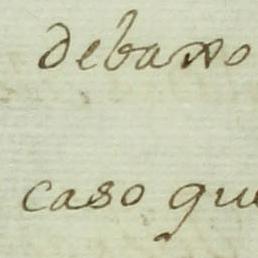 debaxo
caso que